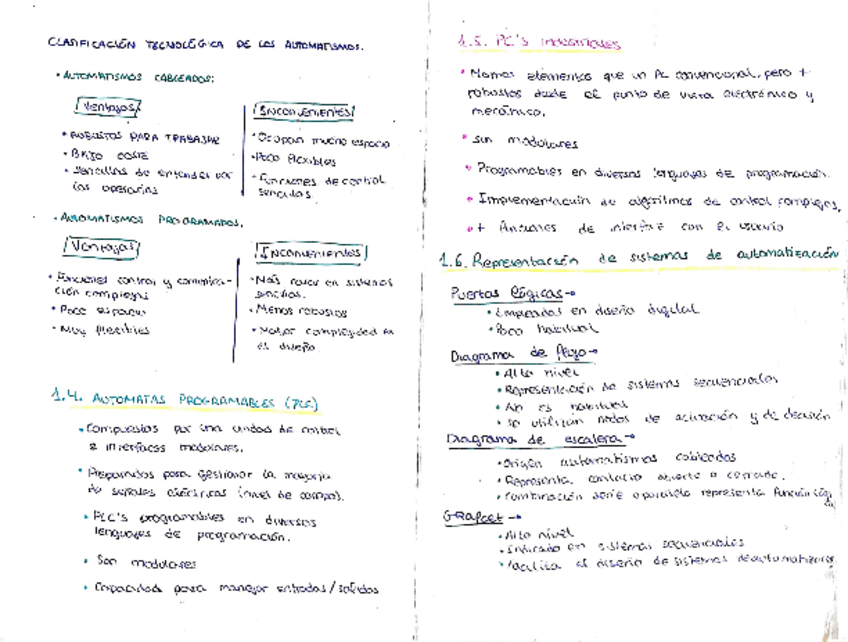 CLASIFICACIÓN TECNOLÓGICA DE LOS AUTOMATISMOS.
• AUTOMATISMOS CABLEADOS:
Ventajas
• ROBUSTOS PARA TRABAJAR
• BAJO COSTE
• Sencillos de entender por
los operarios
INCONVENIENTES
• Ocupan mucho espacio
• Poco flexibles
• Funciones de control
sencillas
• AUTOMATISMOS PROGRAMADOS.
Ventajas
• Funciones control y comunica-
ción complejas
• Poco espacio
• Muy flexibles
INCONVENIENTES
• Más caros en sistemas
sencillos.
• Menos robustos
• Mayor complejidad en
el diseño
1.4. AUTOMATAS PROGRAMABLES (PLC)
• Compuestos por una unidad de control
e interfaces modulares.
• Preparados para gestionar la mayoría
de señales eléctricas (nivel de campo).
• PLC's programables en diversos
lenguajes de programación.
• Son modulares
• Capacidad para manejar entradas/salidas
1.5. PC's industriales
• Mismos elementos que un PC convencional, pero +
robustos desde el punto de vista electrónico y
mecánico.
• sin modulares
• Programables en diversos lenguajes de programación.
• Implementación de algoritmos de control complejos.
• + funciones de interfaz con el usuario
1.6. Representación de sistemas de automatización
Puertas lógicas→
• Empleadas en diseño digital
• Poco habitual
Diagrama de flujo→
• Alto nivel
• Representación de sistemas secuenciales
• No es habitual
• se utilizan nodos de activación y de decisión
Diagrama de escalera→
• Origen automatismos cableados
• Representa contacto abierto o cerrado.
• combinación serie o paralelo representa función lógi
ca
GRAFCET→
• Alto nivel
• Indicado en sistemas secuenciales
• Facilita el diseño de sistemas de automatización